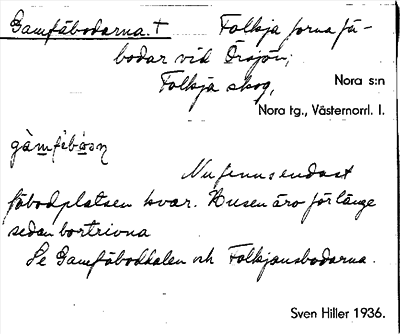 Gamfäbodarna. † Folkja forna fä-
bodar vid Örsjön;
Folkja skog, Nora s:n
Nora tg., Västernorrl. l.
gàmfèbòsn
Nu finns endast
fäbodplatsen kvar. Husen äro för länge
sedan bortrivna
Se Gamfäboddalen och Folkjansbodarna.
Sven Hiller 1936.